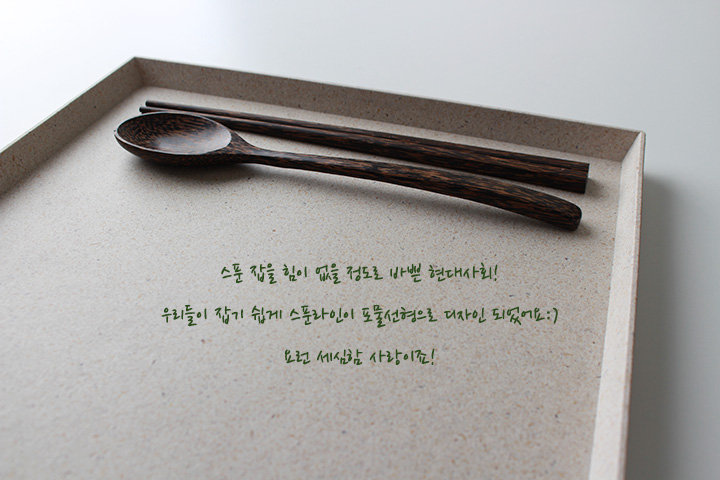 스푼 잡을 힘이 없을 정도로 바쁜 현대사회!
우리들이 잡기 쉽게 스푼라인이 포물선형으로 디자인 되었어요:)
요런 세심함 사랑이죠!